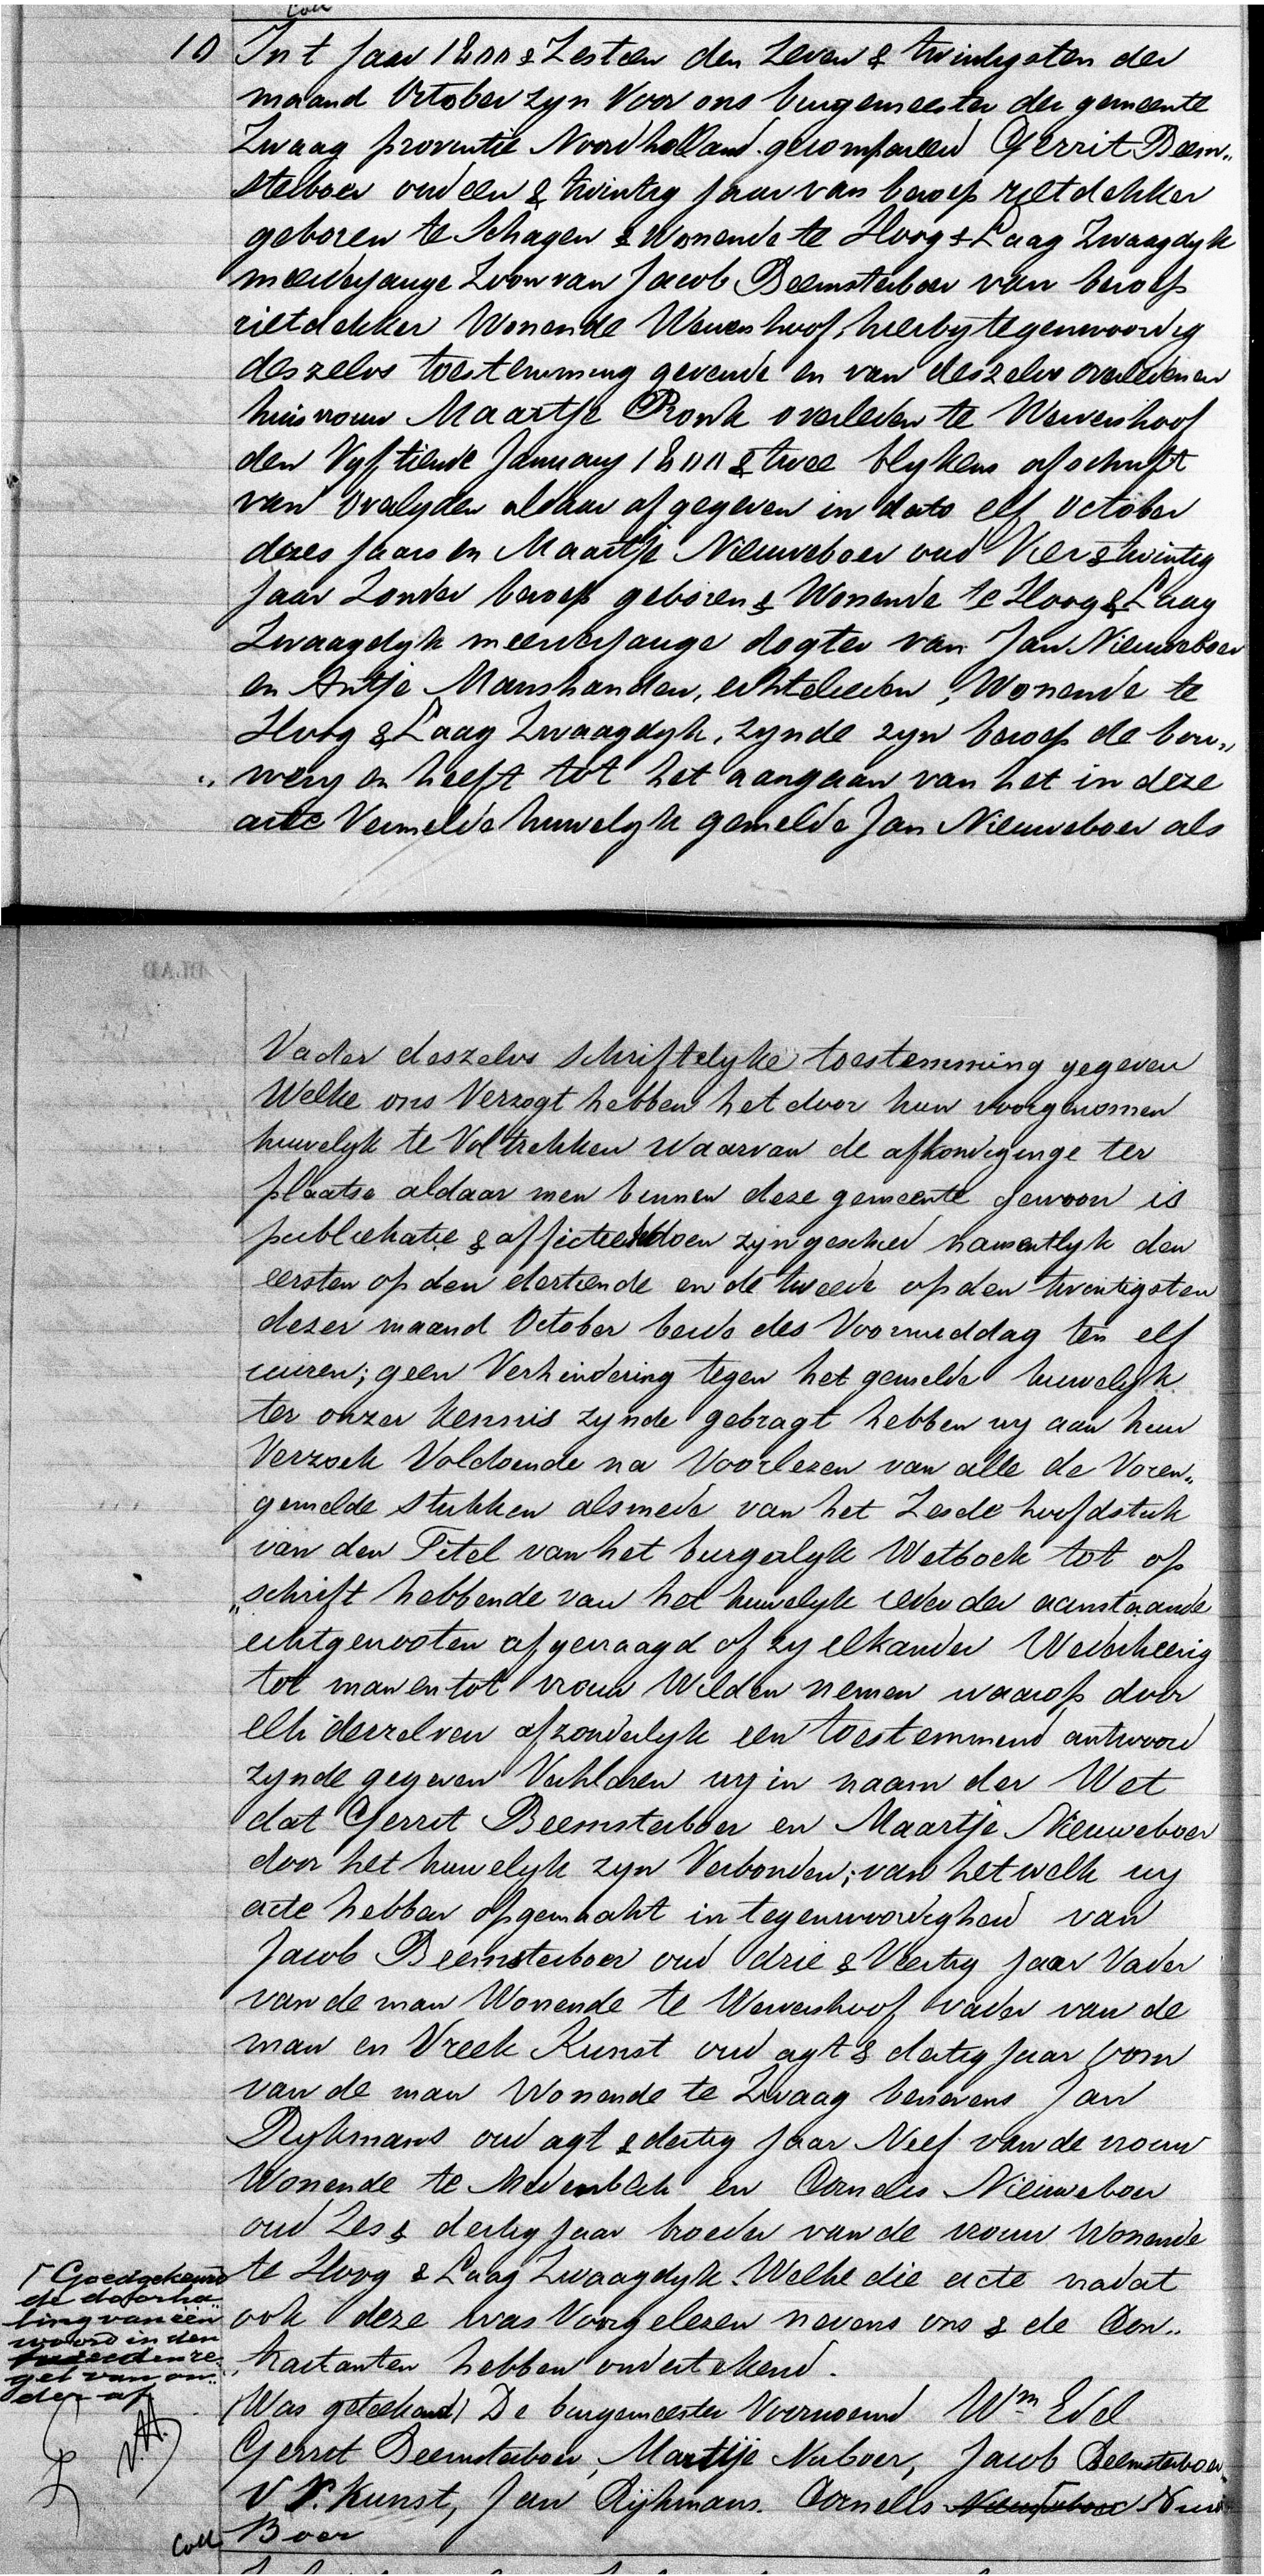 Coll
10 In t Jaar 1800 & Zestien den Zeven & twintigsten der
maand October zyn Voor ons burgemeester der gemeente
Zwaag provintie Noordholland gecompareerd Gerrit Beem„
sterboer oud een & twintig Jaar van beroep rietdekker
geboren te Schagen & Wonende te Hoog & Laag Zwaagdyk
meerderjange Zoon van Jacob Beemsterboer van beroep
rietdekker Wonende Wervershoof, hierby tegenwoordig
deszelvs toestemming gevende en van deszelvs overledenen
huisvrouw Maartje Ronk overleden te Wervershoof
den Vyftiende January 1800 & twee blykens afschrift
van Overlyden aldaar afgegeven in dato elf October
dezes Jaars en Maartje Nieuweboer oud Vier & twintig
Jaar Zonder beroep geboren & Wonende te Hoog & Laag
Zwaagdyk meerderjange dogter van Jan Nieuweboer
en Antje Manshanden, echtelieden, Wonende te
Hoog & Laag Zwaagdyk, zynde zyn beroep de bou„
„ wery en heeft tot het aangaan van het in deze
acte Vermelde huwelyk gemelde Jan Nieuweboer als
Vader deszelvs schriftelyke toestemming gegeven
Welke ons Verzogt hebben het door hun voorgenomen
huwelyk te Voltrekken waarvan de afkondiginge ter
plaatse aldaar men binnen deze gemeente gewoon is
publicatie & affictie doen zyn geschied namentlyk den
eersten op den dertiende en de tweede op den twentigsten
dezer maand October beids des Voormiddag ten elf
uuren; geen Verhindering tegen het gemelde huwelyk
ter onzer kennis zynde gebragt hebben wy aan hun
Verzoek Voldoende na Voorlezen van alle de Voren„
gemelde stukken alsmede van het Zesde hoofdstuk
van den Titel van het burgerlyk Wetboek tot op
„schrift hebbende van het huwelyk ieder der aanstaande
echtgenooten afgevraagd of zy elkander Wederkeerig
tot man en tot vrouw Wilden nemen waarop door
elk derzelven afzonderlyk een toestemmend antwoord
zynde gegeven Verklaren wy in naam der Wet
dat Gerrit Beemsterboer en Maartje Nieuweboer
door het huwelyk zyn Verbonden; van het welk wy
acte hebben opgemaakt in tegenwoordigheid van
Jacob Beemsterboer oud drie & Veertig Jaar Vader
van de man Wonende te Wervershoof vader van de
man en Vreek Kunst oud agt & dertig Jaar oom
van de man Wonende te Zwaag benevens Jan
Rykmans oud agt & dertig Jaar Neef van de vrouw
Wonende te Medenblik en Cornelis Nieuweboer
oud Zes & dertig Jaar broeder van de vrouw Wonende
te Hoog & Laag Zwaagdyk. Welke die acte nadat
ook deze was Voorgelezen nevens ons & de Con„
„tractanten hebben ondertekend.
Goedgekeurd
de doorha„
ling van één
woord in den
tweeden re„
gel van on„
der af
(Was getekend) De burgemeester Voornoemd Wm Edel
Gerret Beemsterboer, Maertije Nuboer, Jacob Beemsterboer,
V P. Kunst, Jan Rijkmans. Cornelis Nieuweboer Nuw
Boer
Coll